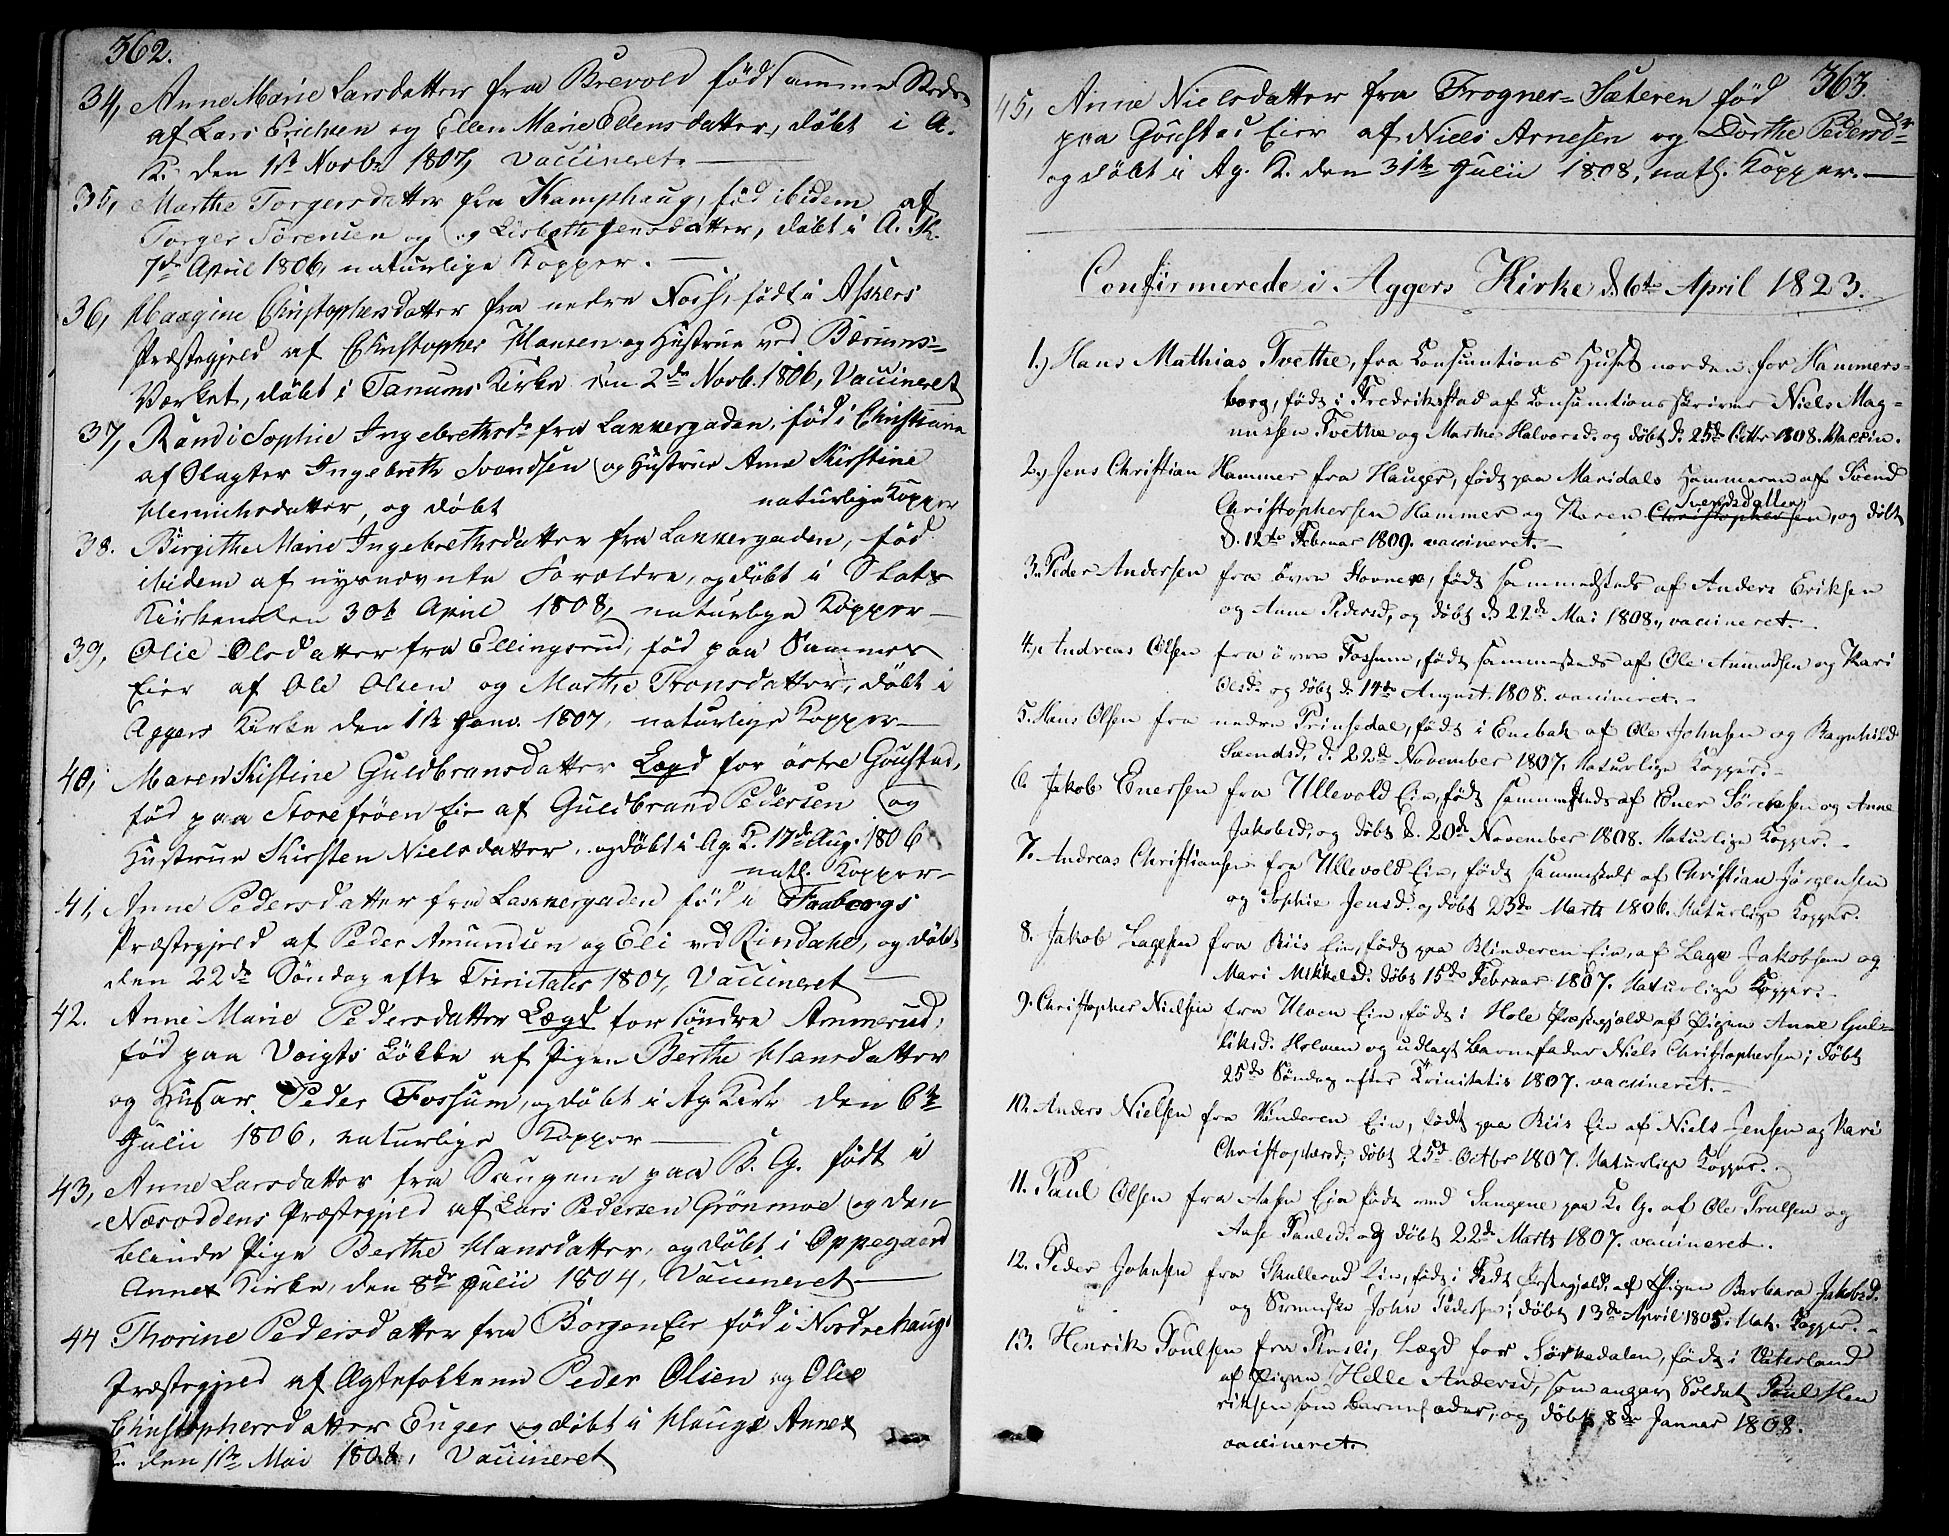 362.
34, Anne Marie Larsdatter fra Brevold född samme Steds
af Lars Erichsen og Ellen Marie Ellensdatter, døbt i A.
K. den 1ste Novbr 1807, Vaccineret.
35, Marthe Torgersdatter fra Kamphaug, föd ibidem af
Torger Sörensen og Lisbeth Jensdatter, døbt i A. K.
7de April 1806, naturlige Kopper.
36, Maagine Christophersdatter fra nedre Nöss, födt i Askers
Præstegjeld af Christopher Hansen og Hustrue ved Bærums-
Værket, døbt i Tanums Kirke den 2de Novb. 1806, Vaccineret
37, Randi Sophie Ingebrethsdr fra Lakkergaden, föd i Christiania
af Slagter Ingebreth Svendsen og Hustrue Anne Kirstine
Henrichsdatter, og døbt naturlige Kopper
38. Birgithe Marie Ingebrethsdatter fra Lakkergaden, föd
ibidem af nysnævnte Forældre, og døbt i Slots
Kirken den 30te April 1808, naturlige Kopper
39, Olie Olsdatter fra Ellingsrud, föd paa Rammes
Eier af Ole Olsen og Marthe Tronsdatter, døbt i
Aggers Kirke den 1te Janv. 1807, naturlige Kopper
40, Maren Kistine Guldbransdatter Lægd for östre Goustad,
föd paa Storefröen Eie af Guldbrand Pedersen og
Hustrue Kirsten Nielsdatter, og döbt i Ag. K. 17de Aug. 1806
natl. Kopper
41, Anne Pedersdatter fra Lakkergaden föd i Faabergs
Præstegjeld af Peder Amundsen og Eli ved Rindahl, og döbt
den 22de Söndag efter Trinitatis 1807, Vaccineret
42. Anne Marie Pedersdatter Lægd for söndre Ammerud,
föd paa Voigts Lökke af Pigen Berthe Hansdatter
og Husar Peder Fossum, og döbt i Ag Kirke den 6te
Julii 1806, naturlige Kopper
43, Anne Larsdatter fra Saugene paa B. G. födt i
Næsoddens Præstegjeld af Lars Pedersen Grönmoe og den
blinde Pige Berthe Hansdatter, og döbt i Oppegaard
Annex Kirke, den 8de Julii 1804, Vaccineret
44 Thorine Pedersdatter fra Borgen Eie föd i Nordrehaugs
Præstegjeld af Ægtefolkene Peder Olsen og Olie
Christophersdatter Enger og döbt i Haugs Annex
K. den 1te Mai 1808, Vaccineret
363.
45, Anne Nielsdatter fra Frogner-Sæteren föd
paa Goustad Eier af Niels Arnesen og Dorthe Pedersdr
og döbt i Ag. K. den 31te Julii 1808, natl. Kopper.
Confirmerede i Aggers Kirke d. 6te April 1823.
1.) Hans Mathias Tvethe, fra Consumtions Huset norden for Hammers-
borg, födt i Fredrikstad af Consumtionsskriver Niels Mag-
nussen Tvethe og Marthe Halvorsd. og døbt d. 25de Octbr 1808. Vaccin.
2.) Jens Christian Hammer fra Hauger, födt paa Maridals Hammeren af Svend
Christophersen Hammer og Karen Christophersen, og döbt
Svendsdatter
d. 12te Februar 1809. vaccineret.
3. Peder Andersen fra övre Hovne, födt sammesteds af Anders Eriksen
og Anne Pedersd, og døbt d 22de Mai 1808, vaccineret.
4. Andreas Olsen fra övre Fossum, födt sammesteds af Ole Amundsen og Kari
Olsd. og döbt d. 14te August. 1808. vaccineret.
5. Hans Olsen fra nedre Prinsedal, födt i Enebak af Ole Johnsen og Ragnhild
Svendsd, d. 22de November 1807. Naturlige Kopper.
6. Jakob Enersen fra Ullevold Eie, födt sammesteds af Ener Sörensen og Anne
Jakobsd, og döbt d. 20de November 1808. Naturlige Kopper.
7. Andreas Christiansen fra Ullevold Eie, födt sammesteds af Christian Jörgensen
og Sophie Jensd. og döbt 23de Marts 1806. Naturlige Kopper.
8. Jakob Lagesen fra Riis Eie, födt paa Blinderen Eie, af Lage Jakobsen og
Mari Mikkelsd. döbt 15de Februar 1807. Naturlige Kopper.
9. Christopher Nielsen fra Ulven Eie, födt i Hole Præstegjeld af Pigen Anne Gul-
liksd. Holmen og udlagt Barnefader Niels Christophersen, döbt
25de Söndag efter Trinitatis 1807. vaccineret.
10. Anders Nielsen fra Vinderen Eie, födt paa Riis Eie af Niels Jensen og Kari
Christophersd, döbt 25de Octbr 1807. Naturlige Kopper.
11. Paul Olsen fra Aasen Eie födt ved Saugene paa K. G. af Ole Trulsen og
Aase Paulsd. og döbt 22de Marts 1807. vaccineret.
12. Peder Johnsen fra Skullerud Eie, födt i Fedt Præstegjeld, af Pigen Barbara Jakobsd.
og Svenske John Pedersen; döbt 13de April 1805. Nat. Kopper.
13. Henrik Poulsen fra Lægd for Sörkedalen, födt i Vaterland
af Pigen Helle Andersd, som angav Soldat Poul Hen
riksen som Barnefader, og döbt 8de Januar 1808.
vaccineret.